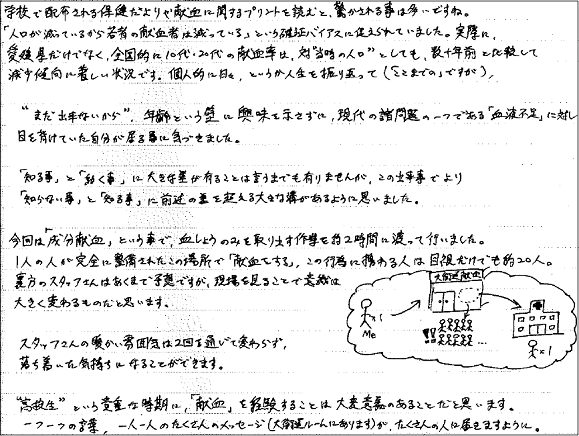 学校で配布される保健だよりや献血に関するプリントを読むと、驚かされる事は多いですね。
「人口が減っているから若者の献血者は減っている」という確証バイアスに捉えられていました。実際に、
愛媛県だけでなく、全国的に10代・20代の献血率は、対"当時の人口"としても、数十年前と比較して
減少傾向に著しい状況です。個人的に日々、というか人生を振り返って(「ここまでの」ですが)、
"まだ出来ないから"、年齢という壁に興味を示さずに、現代の諸問題の一つである「血液不足」に対し
目を背けていた自分が居る事に気づきました。
「知る事」と「動く事」に大きな差が有ることは言うまでも有りませんが、この出来事でより
「知らない事」と「知る事」に前述の差を超える大きな溝があるように思いました。
今回は「成分献血」という事で、血しょうのみを取り出す作業を約2時間に渡って行いました。
1人の人が完全に整備されたこの場所で「献血をする」、この行為に携わる人は目視だけでも約20人。
裏方のスタッフさんはあくまで予想ですが、現場を見ることで意識は
大きく変わるものだと思います。
大街道献血
×1
Me
!!
...
×1
スタッフさんの暖かい雰囲気は2回を通じて変わらず、
落ち着いた気持ちになることができます。
"高校生"という貴重な時期に、「献血」を経験することは大変意義のあることだと思います。
一つ一つの言葉、一人一人のたくさんのメッセージ(大街道ルームにあります)が、たくさんの人に届きますように。